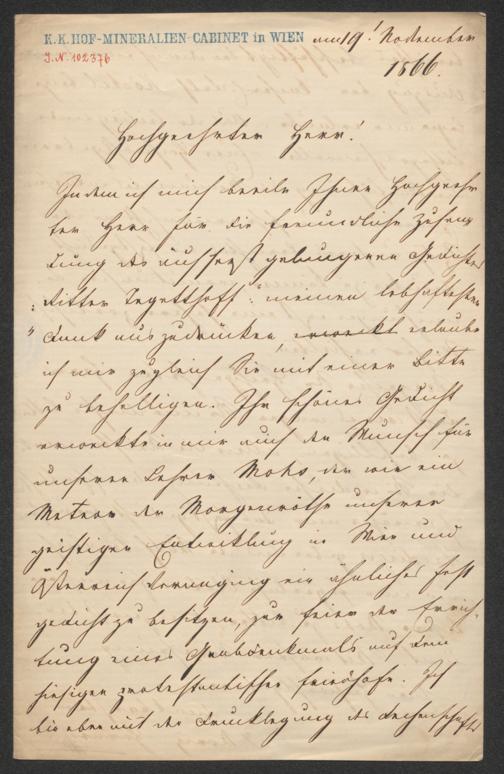 K. K. HOF-MINERALIEN-CABINET in WIEN am 19! November
J. N. 102376
1866.
Hochgeehrter Herr!
Indem ich mich beeile Ihnen Hochgeehr
ter Herr für die freundliche Zusen
dung des äusserst gelungenen Gedichtes
"Ritter Tegetthoff" meinen lebhaftesten
Dank auszudrücken, erweckt erlaube
ich mir zugleich Sie mit einer Bitte
zu behelligen. Ihr schönes Gedicht
erweckte in mir auch den Wunsch für
unseren Lehrer Mohs, der wie ein
Meteor der Morgenröthe unserer
geistigen Entwicklung in Wien und
Österreich voranging ein ähnliches Fest
gedicht zu besitzen, zur Feier der Errich-
tung eines Grabdenkmals auf dem
hiesigen protestantischen Friedhofe. Ich
bin eben mit der Drucklegung des Rechenschafts